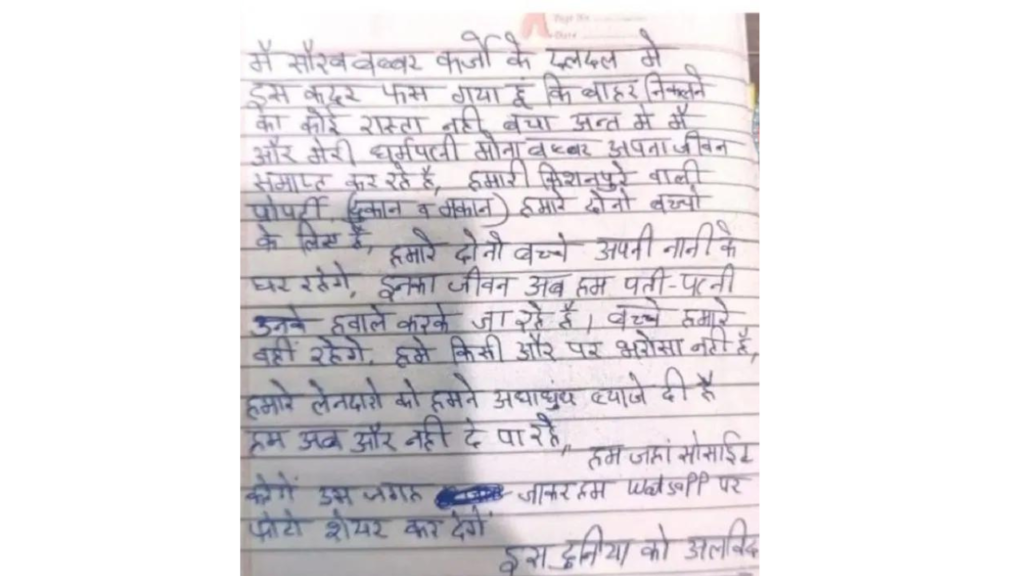 मै सौरव बब्बर कर्जो के दलदल मे
इस कदर फस गया हूं कि बाहर निकलने
का कोई रास्ता नही बचा अन्त मे मै
और मेरी धर्मपत्नी मोना बब्बर अपना जीवन
समाप्त कर रहे है, हमारी किशनपुरे वाली
प्रोपर्टी (दुकान व मकान) हमारे दोनो बच्चो
के लिए है, हमारे दोनो बच्चे अपनी नानी के
घर रहेगे, इनका जीवन अब हम पती-पत्नी
उनके हवाले करके जा रहे है। बच्चे हमारे
वहीं रहेगे, हमे किसी और पर भरोसा नही है,
हमारे लेनदारो को हमने अंधाधुंध ब्याजे दी है
हम अब और नही दे पा रहे,
हम जहां सोसाईट
करेगें उस जगह जाकर हम Watsaff पर
फोटो शेयर कर देगें
इस दुनिया को अलविद